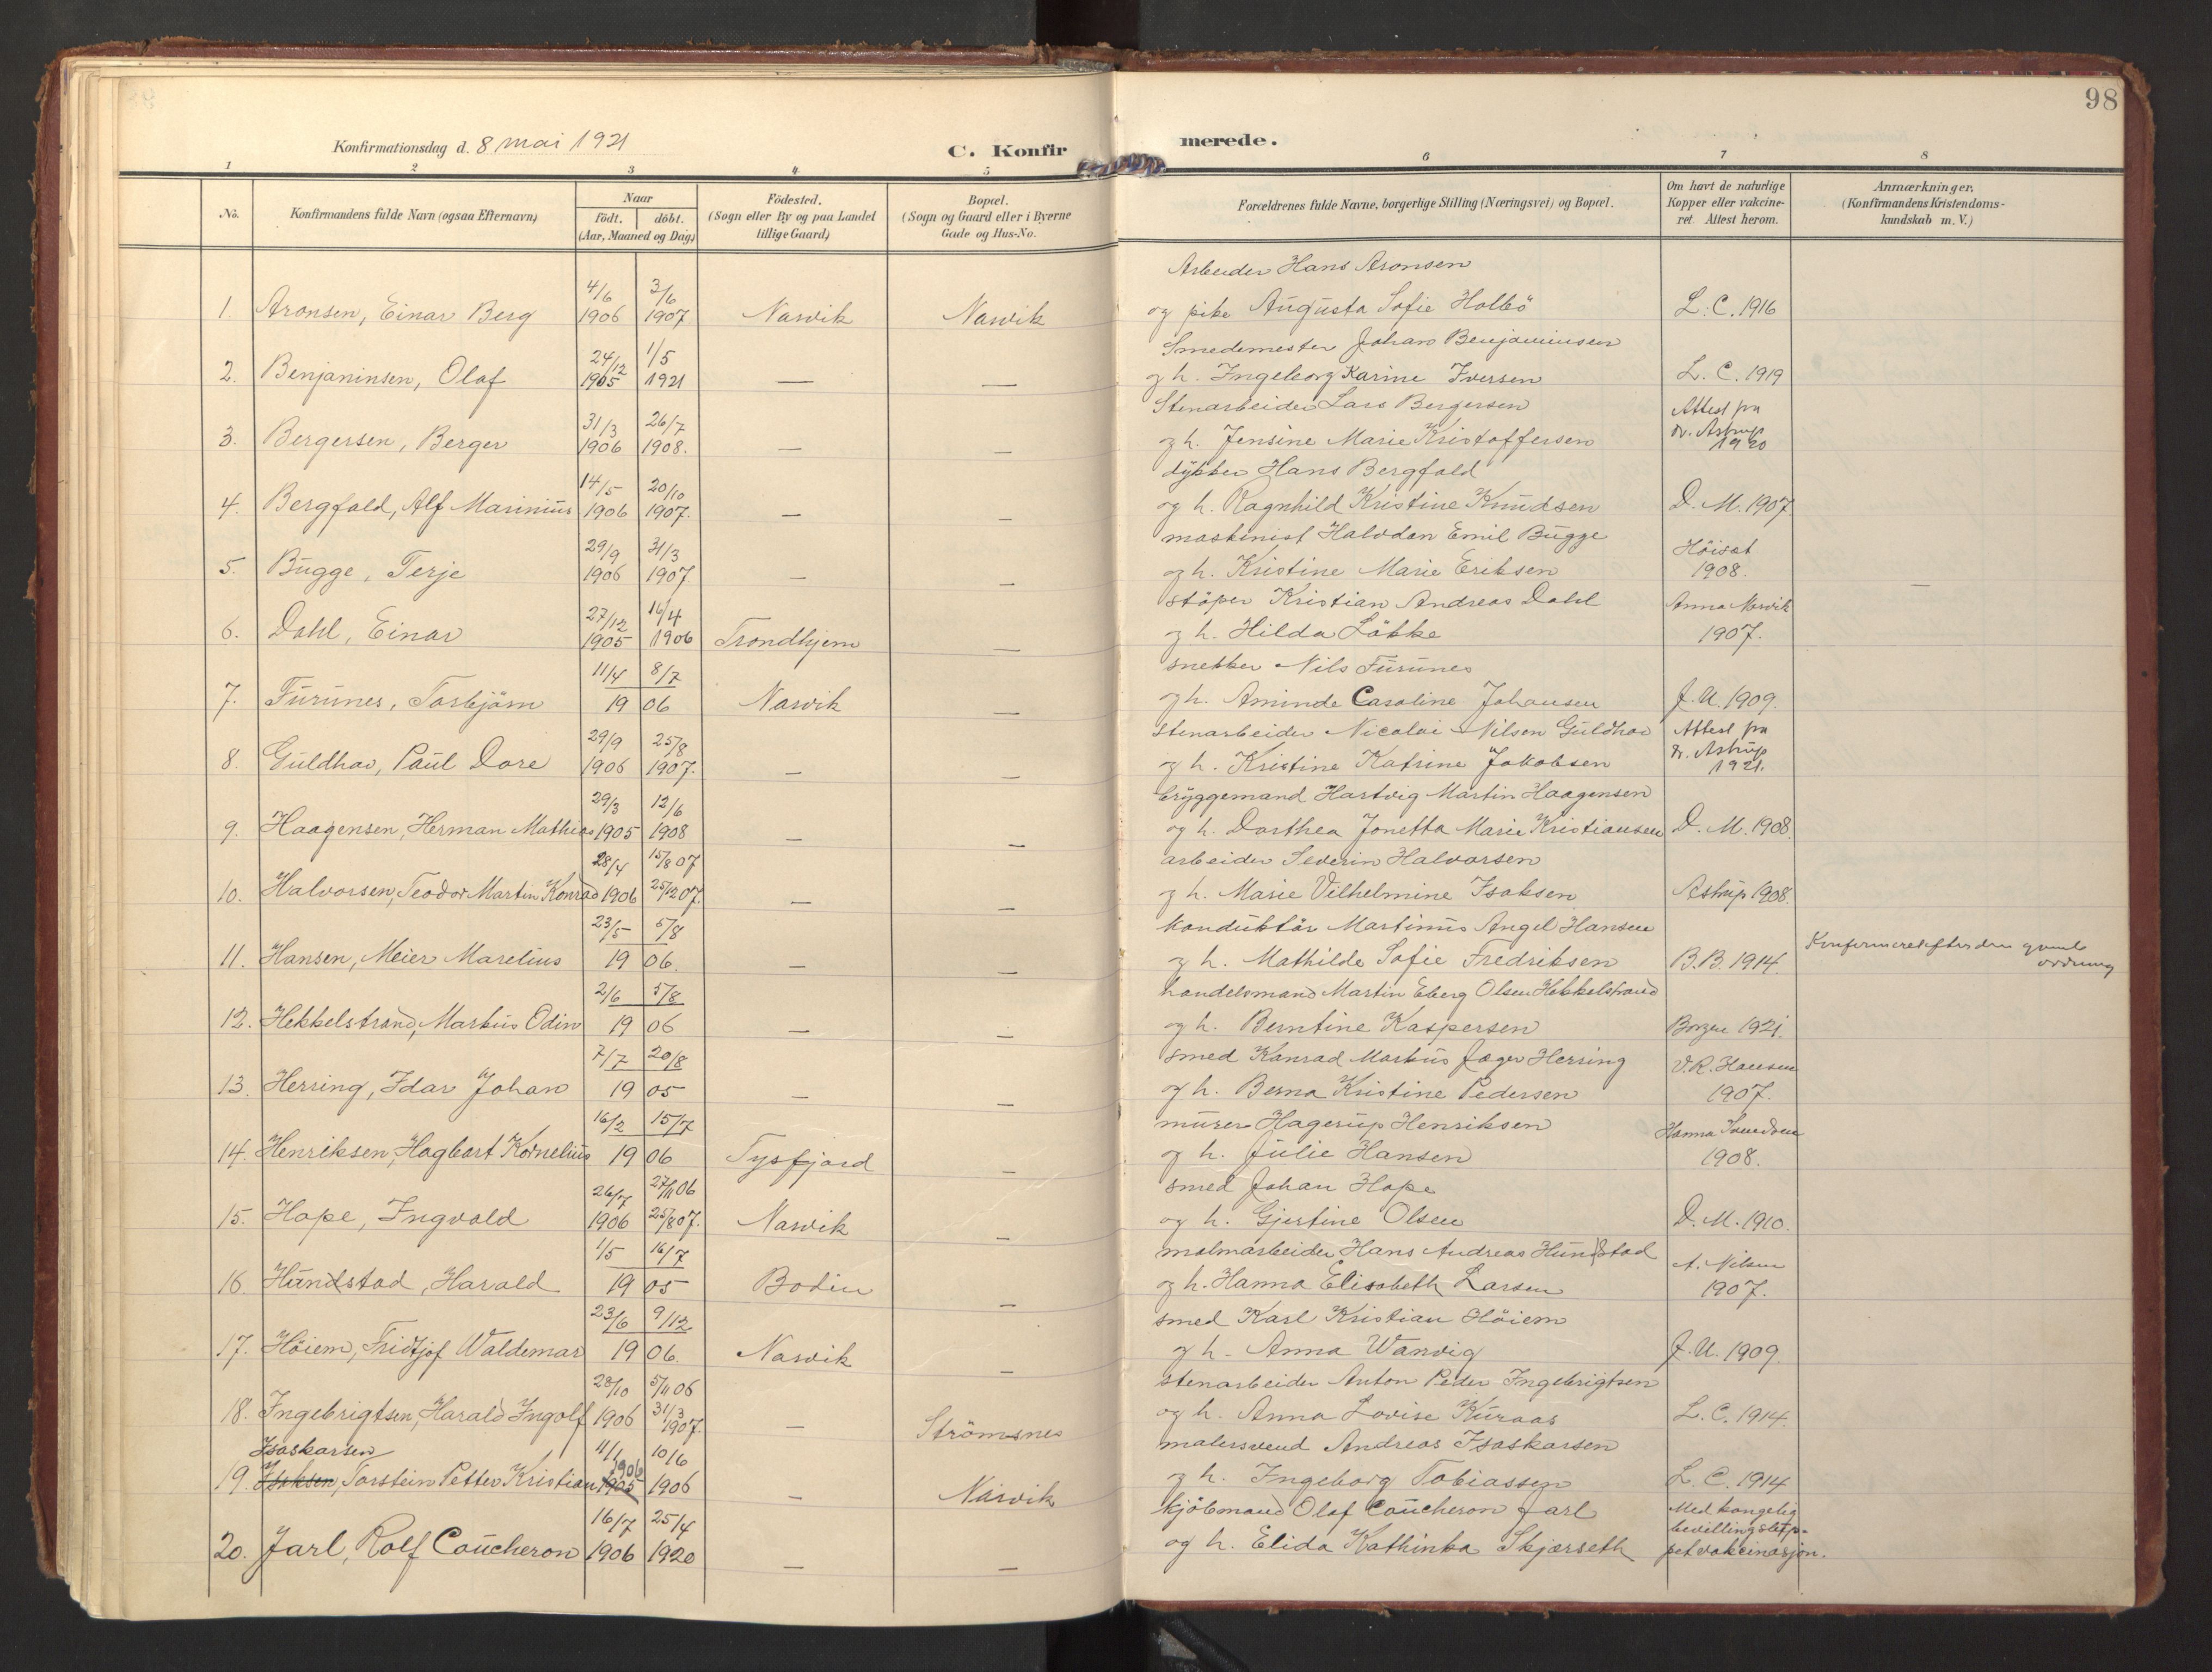 98
Konfirmationsdag d. 8 mai 1921
C. Konfirmerede.
1 2 3 4 5 6 7 8
No.
Konfirmandens fulde Navn (ogsaa Efternavn)
Naar
født. døbt.
(Aar, Maaned og Dag)
Fødested.
(Sogn eller By og paa Landet
tillige Gaard)
Bopæl.
(Sogn og Gaard eller i Byerne
Gade og Hus-No.
Forældrenes fulde Navne, borgerlige Stilling (Næringsvei) og Bopæl.
Om havt de naturlige
Kopper eller vakcine-
ret Attest herom.
Anmærkninger.
(Konfirmandens Kristendoms-
kundskab m. V.)
4/6 3/6 Arbeider Hans Aronsen
1. Aronsen, Einar Berg 1906 1907 Narvik Narvik og pike Augusta Sofie Holbö L. C. 1916
24/12 1/5 Smedemester Johan Benjaminsen
2. Benjaninsen, Olaf 1905 1921 — — og h. Ingeborg Karine Iversen L. C. 1919
31/3 26/7 Stenarbeider Lars Bergersen Attest fra
3. Bergersen, Berger 1906 1908. — — og h. Jensine Marie Kristoffersen dr. Astrup 1920
14/5 20/10 dykker Hans Bergfald
4. Bergfald, Alf Marinius 1906 1907. — — og h. Ragnhild Kristine Knudsen D. M. 1907
29/9 31/3 maskinist Halvdan Emil Bugge Höisæt
5. Bugge, Terje 1906 1907. — — og h. Kristine Marie Eriksen 1908. —
27/12 16/4 støper Kristian Andreas Dahl Anna Narvik
6. Dahl, Einar 1905 1906 Trondhjem — og h. Hilda Lökke 1907.
11/4 8/7 snekker Nils Furunes
7. Furunes, Torbjörn 19 06 Narvik — og h. Aminde Caroline Johansen J. U. 1909.
29/9 25/8 stenarbeider Nicolai Nilsen Guldhav Attest fra
8. Guldhav, Paul Dore 1906 1907. — — og h. Kristine Katrine Jakobsen dr. Astrup 1921.
29/3 12/6 bryggemand Hartvig Martin Haagensen
9. Haagensen, Herman Mathias 1905 1908 — — og h. Dorthea Jonetta Marie Kristiansen D. M. 1908.
28/4 15/8 07 arbeider Severin Halvorsen
10. Halvorsen, Teodor Martin Konrad 1906 25/12 07. — — og h. Marie Vilhelmine Isaksen Astrup 1908.
23/5 5/8 konduktör Martinus Angel Hansen
11. Hansen, Meier Marelius 19 06. — — og h. Mathilde Sofie Fredriksen B. B. 1914. Konfirmeret efter den gamle
ordning
2/6 5/8 handelsmand Martin Eberg Olsen Hekkelstrand
12. Hekkelstrand, Markus Odin 19 06 — — og h. Berntine Kaspersen Borgen 1921.
7/7 20/8 smed Konrad Markus Jæger Herring V. R. Hansen
13. Herring, Idar Johan 19 05 — — og h. Berna Kristine Pedersen 1907.
16/2 15/7 murer Hagerup Henriksen Hanna
14. Henriksen, Hagbart Kornelius 19 06 Tysfjord — og h. Julie Hansen 1908.
26/7 27/11 06 smed Johan Hope
15. Hope, Ingvald 1906 25/8 07. Narvik — og h. Gjertine Olsen D. M. 1910.
1/5 16/7 malmarbeider Hans Andreas Hundstad A. Nilsen
16. Hundstad, Harald 19 05 Bodin — og h. Hanna Elisabeth Larsen 1907.
23/6 9/12 smed Karl Kristian Höiem
17. Höiem, Fridtjof Waldemar 19 06. Narvik — og h. Anna Warvig J. U. 1909.
28/10 5/11 06 stenarbeider Anton Peder Ingebrigtsen
18. Ingebrigtsen, Harald Ingolf 1906 31/3 1907. — Strömsnes og h. Anna Lovise Kuraas L. C. 1914.
Isaskarsen 11/1 1906 10/6 malersvend Andreas Isaskarsen
19. Isaksen, Torstein Petter Kristian 1905 1906 — Narvik og h. Ingeborg Tobiassen L. C. 1914
16/7 25/4 kjöbmand Olaf Coucheron Jarl Med kongelig
bevilling slöp-
20. Jarl, Rolf Coucheron 1906 1920 — — og h. Elida Kathinka Skjærseth pet vakcinasjon.